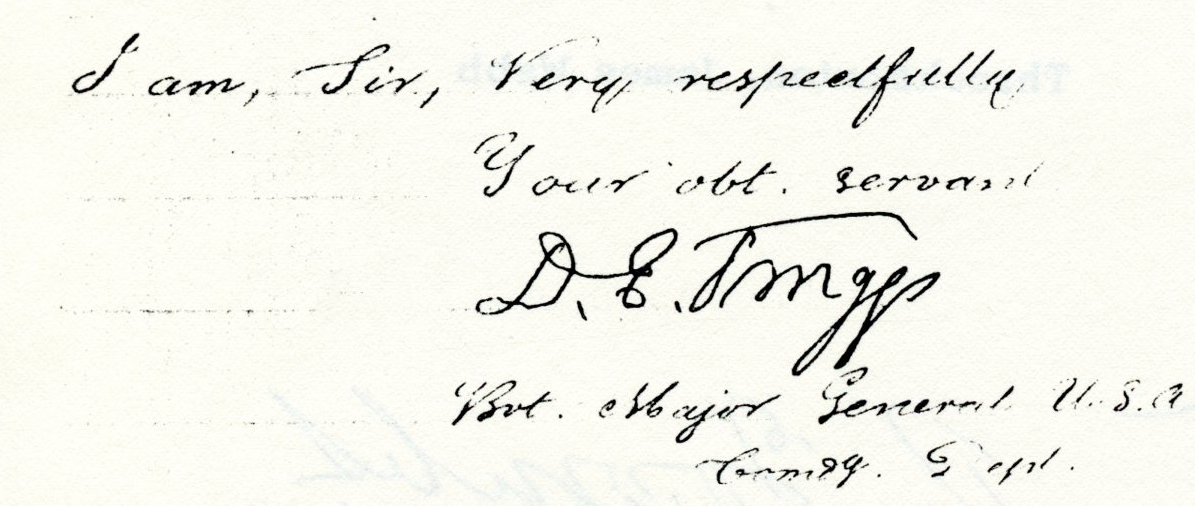 I am, Sir, Very respectfully
Your obt. servant
D. E. Twiggs
Bvt. Major General U.S.A
Comdg. Dept.